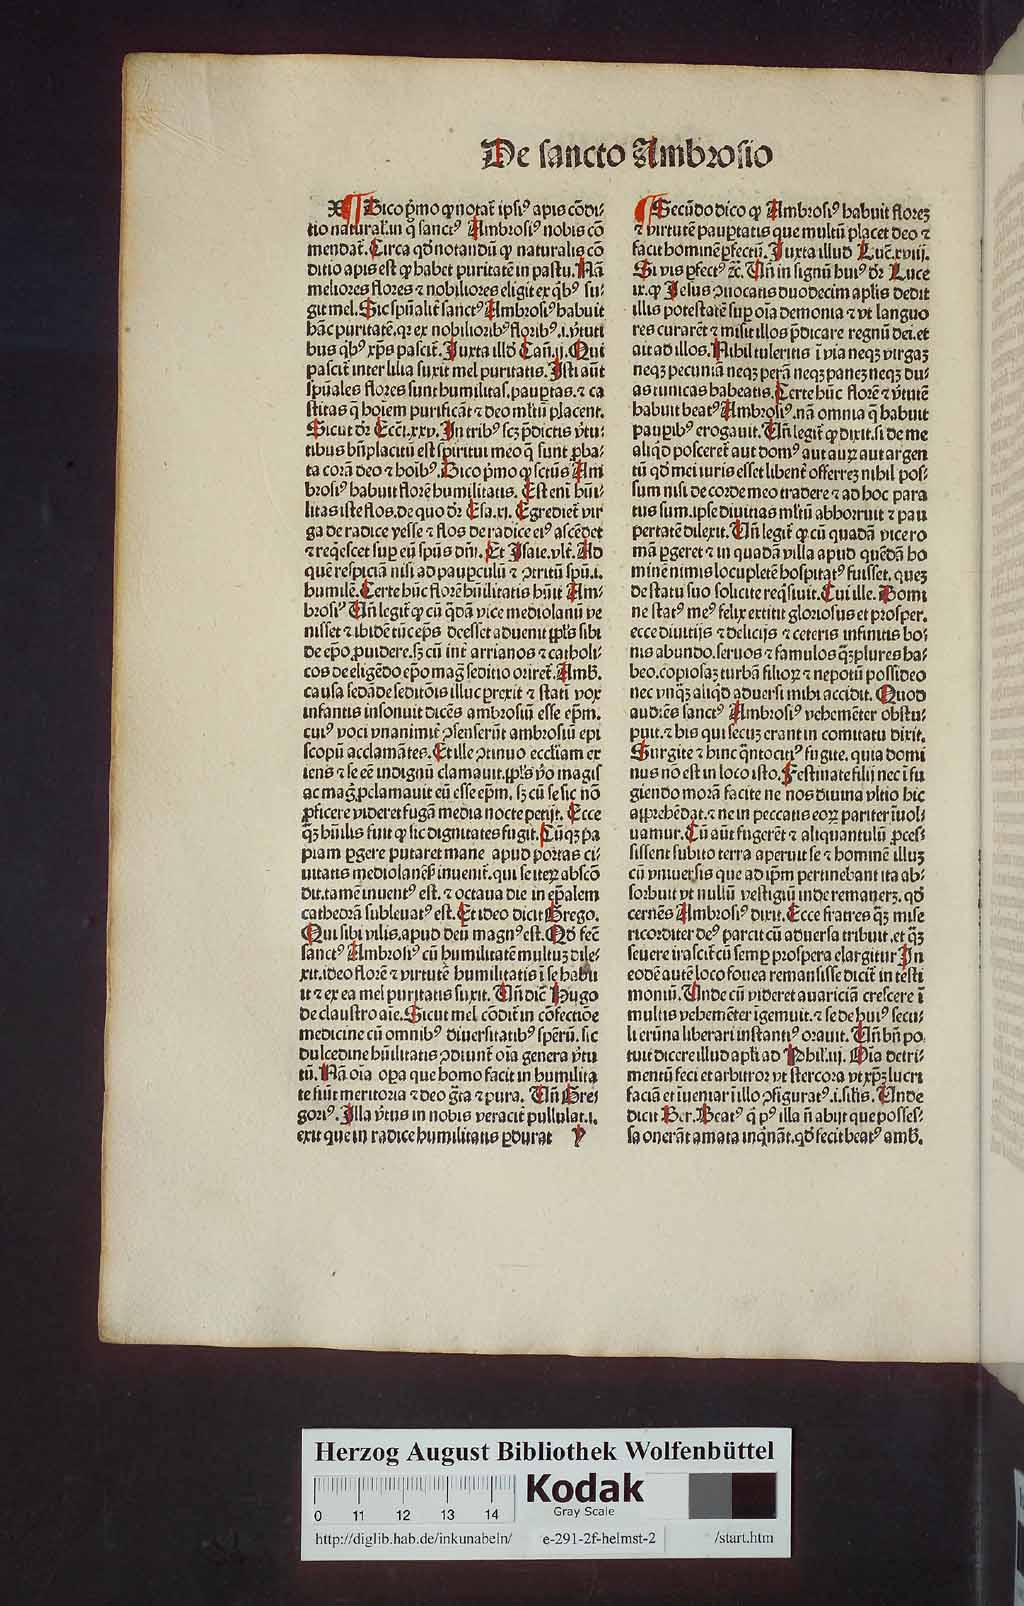 De sancto Ambrosio
X Dico p̄mo qꝫ notat̄ ipsiꝰ apis cōdi⸗
tio natural̓.in q̄ sanctꝰ Ambrosiꝰ nobis cō
mendat̄. Circa qd̓ notandū ꝙ naturalis cō
ditio apis est ꝙ habet puritatē in pastu. Nā
meliores flores ⁊ nobiliores eligit ex qb̓ꝰ su⸗
git mel. Sic spūalit̓ sanctꝰ Ambrosiꝰ habuit
hāc puritatē. qꝛ ex nobiliorib̓ꝰ florib̓ꝰ .i. v̓tuti
bus qb̓ꝰ xp̄s pascit̄. Juxta illd̓ Cań.ij. Qui
pascit̄ inter lilia suxit mel puritatis. Isti aūt
spūales flores sunt humilitas. pauꝑtas. ⁊ ca
stitas q̄ hoīem purificāt ⁊ deo ml̓tū placent.
Sicut dr̄ Eccī.xxv. In tribꝰ scꝫ p̄dictis v̓tu⸗
tibus bn̄placitū est spiritui meo q̄ sunt ꝓba⸗
ta corā deo ⁊ hoīb̓ꝰ. Dico p̄mo ꝙ sctūs Am
brosiꝰ habuit florē humilitatis. Est enī hūi⸗
litas iste flos. de quo dr̄ Esa.xi. Egrediet̄ vir
ga de radice yesse ⁊ flos de radice eiꝰ ascēdet
⁊ reqescet suꝑ eū spūs dn̄i. Et Isaie.vlt̄. Ad
quē respiciā nisi ad pauꝑculū ⁊ ꝯtritū spū.i.
humilē. Certe hūc florē hūilitatis hūit Am⸗
brosiꝰ Un̄ legit̄ ꝙ cū q̄dā vice mediolanū ve
nisset ⁊ ibidē tūc ep̄s deesset aduenit ppl̓s sibi
de ep̄o ꝓuidere. sꝫ cū int̄ arrianos ⁊ catholi⸗
cos de eligēdo ep̄o mag̓ seditio oriret̄. Amb̄.
causa sedāde seditōis illuc ꝑrexit ⁊ statī vox
infantis insonuit dicēs ambrosiū esse ep̄m.
cuiꝰ voci vnanimit̓ ꝯsenserūt ambrosiū epi
scopū acclamātes. Et ille ꝯtinuo eccl̓iam ex
iens ⁊ se eē indignū clamauit. ppl̓s v̓o magis
ac mag̓ ꝓclamauit eū esse ep̄m. sꝫ cū se sic nō
ꝓficere videret fugā media nocte petijt. Ecce
q̄ꝫ hūilis fuit ꝙ sic dignitates fugit. Cūqꝫ pa
piam ꝑgere putaret mane apud portas ci⸗
uitatis mediolanēs̓ inuenit̄. qui se iteꝝ abscō
dit. tamē inuentꝰ est. ⁊ octaua die in ep̄alem
cathedrā subleuatꝰ est. Et ideo dicit Grego.
Qui sibi vilis. apud deū magnꝰ est. Qd̓ fec̄
sanctꝰ Ambrosiꝰ cū humilitatē multuꝫ dile⸗
xit. ideo florē ⁊ virtutē humilitatis ī se habu
it ⁊ ex ea mel puritatis suxit. Un̄ dic̄ Hugo
de claustro aīe. Sicut mel cōdit̄ in cōfectiōe
medicine cū omnib̓ꝰ diuersitatib̓ꝰ spērū. sic
dulcedine hūilitatis ꝯdiunt̄ oīa genera v̓tu
tū. Nā oīa oꝑa que homo facit in humilita
te fiūt meritoria ⁊ deo g̓ta ⁊ pura. Un̄ Gre⸗
goriꝰ. Illa v̓tus in nobis veracit̄ pullulat.i.
exit que in radice humilitatis ꝑdurat y
Secūdo dico ꝙ Ambrosiꝰ habuit floreꝫ
⁊ virtutē pauꝑtatis que multū placet deo ⁊
facit hominē ꝑfectū. Juxta illud Luc̄.xviij.
Si vis ꝑfectꝰ ⁊c̄. Un̄ in signū huiꝰ dr̄ Luce
ix. ꝙ Jesus ꝯuocatis duodecim apl̓is dedit
illis potestatē suꝑ oīa demonia ⁊ vt languo
res curarēt ⁊ misit illos p̄dicare regnū dei. et
ait ad illos. Nihil tuleritis ī via neqꝫ virgaꝫ
neqꝫ pecuniā neqꝫ perā neqꝫ paneꝫ neqꝫ du⸗
as tunicas habeatis. Certe hūc florē ⁊ v̓tutē
habuit beatꝰ Ambrosiꝰ. nā omnia q̄ habuit
pauꝑibꝰ erogauit. Un̄ legit̄ ꝙ dixit. si de me
aliqd̓ posceret̄ aut domꝰ aut auꝝ aut argen
tū qd̓ mei iuris esset libent̓ offerreꝫ nihil pos⸗
sum nisi de corde meo tradere ⁊ ad hoc para
tus sum. ipse diuitias ml̓tū abhorruit ⁊ pau
pertatē dilexit. Un̄ legit̄ ꝙ cū quadā vice ro
mā ꝑgeret ⁊ in quadā villa apud quēdā ho
minē nimis locupletē hospitatꝰ fuisset. queꝫ
de statu suo solicite reqsiuit. Cui ille. Domi
ne statꝰ meꝰ felix extitit gloriosus et prosper.
ecce diuitijs ⁊ delicijs ⁊ ceteris infinitis bo⸗
nis abundo. seruos ⁊ famulos q̄ꝫplures ha⸗
beo. copiosaꝫ turbā filioꝝ ⁊ nepotū possideo
nec vnq̄ꝫ aliqd̓ aduersi mihi accidit. Quod
audiēs sanctꝰ Ambrosiꝰ vehemēter obstu⸗
puit. ⁊ his qui secuꝫ erant in comitatu dixit.
Surgite ⁊ hinc q̄ntocitiꝰ fugite. quia domi
nus nō est in loco isto. Festinate filij nec ī fu
giendo morā facite ne nos diuina vltio hic
apprehēdat. ⁊ ne in peccatis eoꝝ pariter īuol⸗
uamur. Cū aūt fugerēt ⁊ aliquantulū ꝓces⸗
sissent subito terra aperuit se ⁊ hominē illuꝫ
cū vniuersis que ad ip̄m pertinebant ita ab⸗
sorbuit vt nullū vestigiū inde remanerꝫ. qd̓
cernēs Ambrosiꝰ dixit. Ecce fratres q̄ꝫ mise
ricorditer deꝰ parcit cū aduersa tribuit. et q̄ꝫ
seuere irascit̄ cū semꝑ prospera elargitur In
eodē autē loco fouea remansisse dicit̄ in testi
moniū. Unde cū videret auariciā crescere ī
multis vehemēter igemuit. ⁊ se de huiꝰ secu⸗
li erūna liberari instantiꝰ orauit. Un̄ bn̄ po⸗
tuit dicere illud apl̓i ad Phil̓.iij. Oīa detri⸗
mentū feci et arbitror vt stercora vt xp̄ꝫ lucri
faciā et īueniar ī illo ꝯfiguratꝰ.i. sil̓is. Unde
dicit Ber. Beatꝰ q̄ pꝰ illa n̄ abijt que posses⸗
sa onerāt amata inqnāt. qd̓ fecit beatꝰ amb̄.
Herzog August Bibliothek Wolfenbüttel
0 11 12 13 14
Kodak
Gray Scale
http://diglib.hab.de/inkunabeln/ e-291-2f-helmst-2 /start.htm